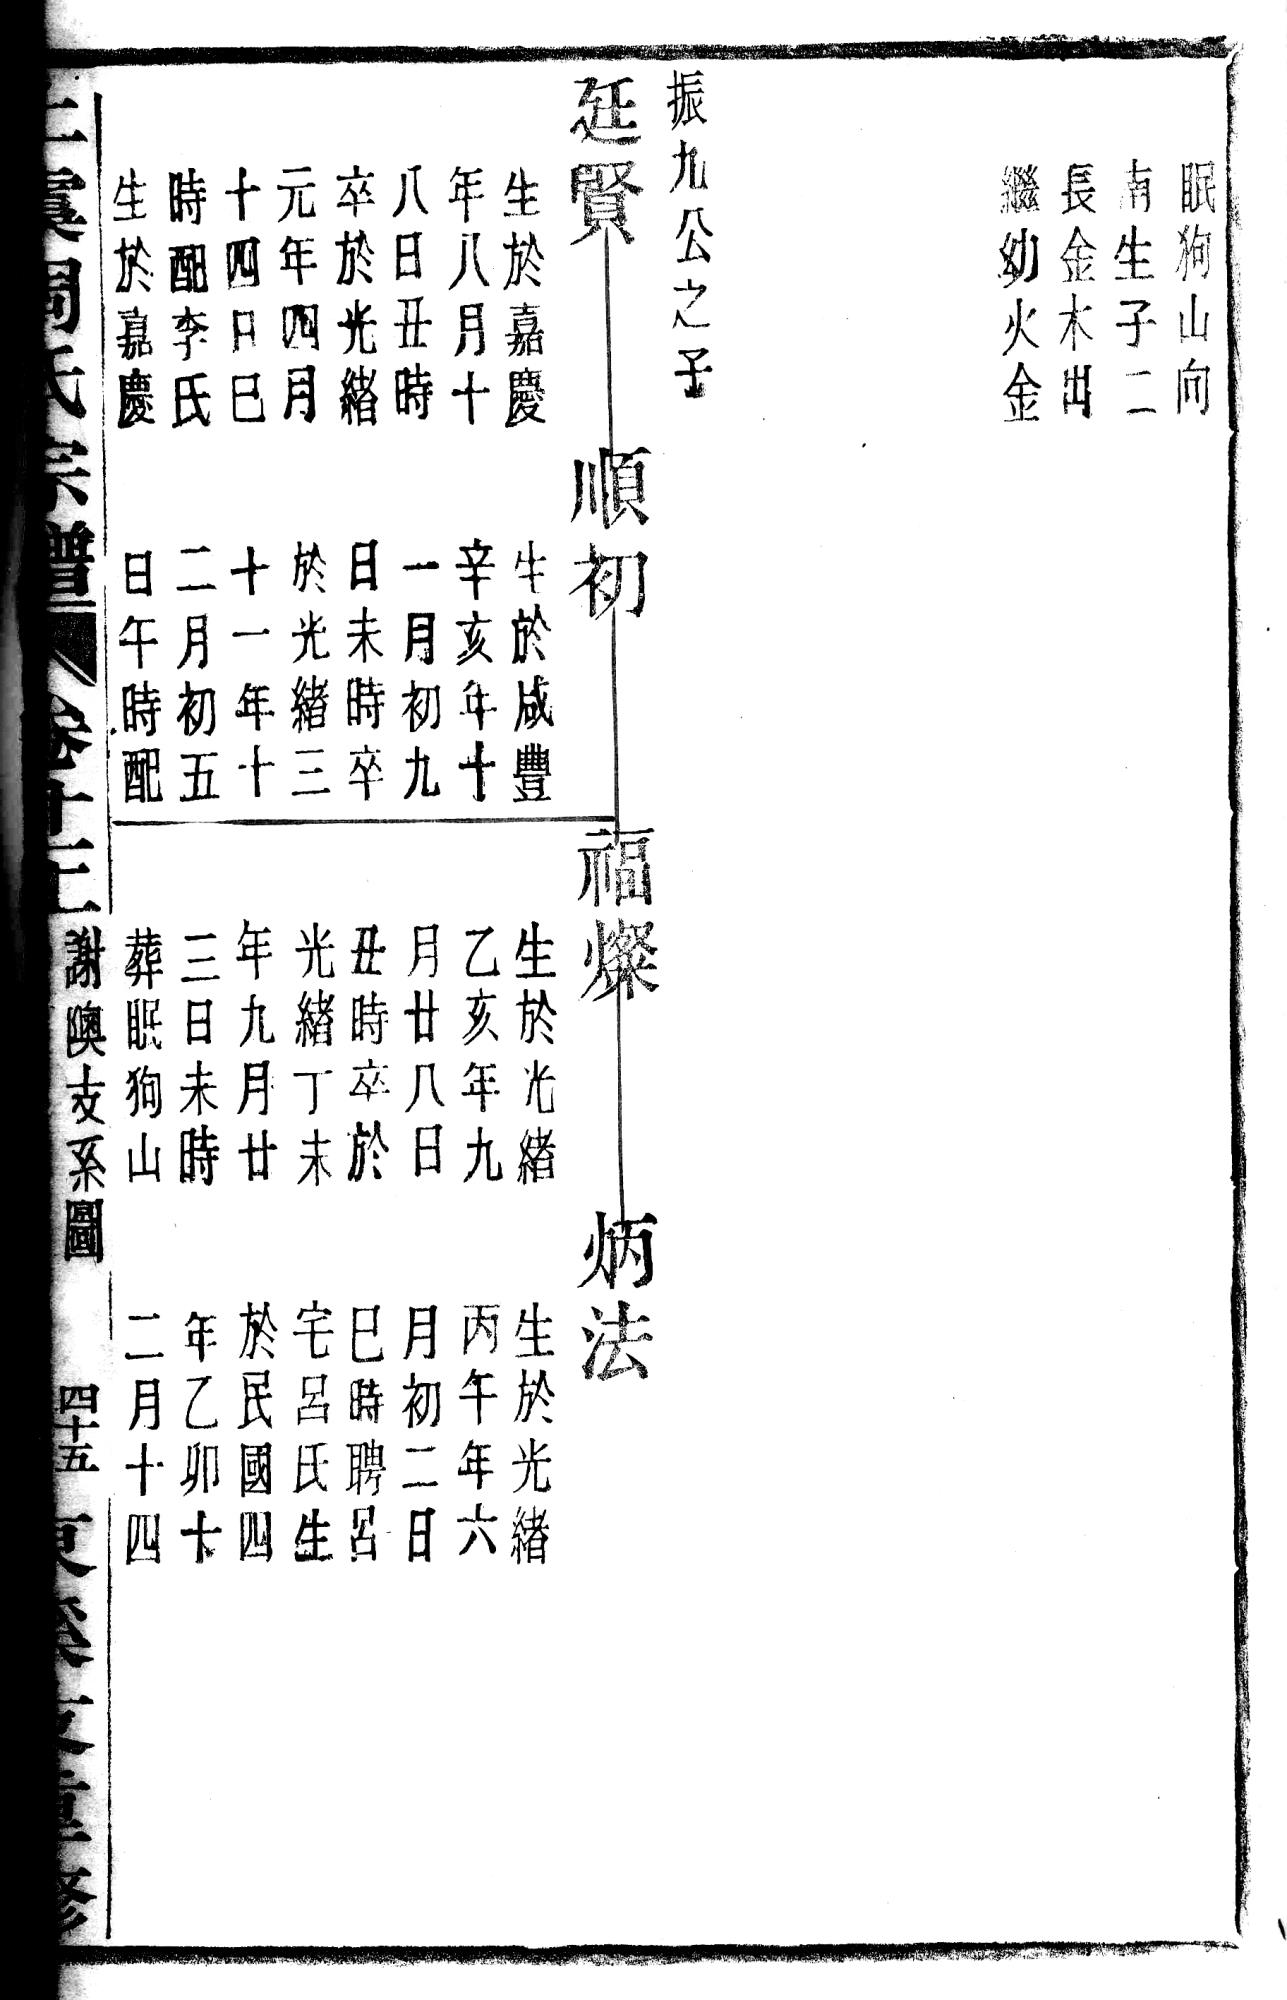 眠狗山向
南生子二
長金木出
繼幼火金
振九公之子
廷賢
生於嘉慶
年八月十
八日丑時
卒於光緒
元年四月
十四日巳
時配李氏
生於嘉慶
順初
生於咸豐
辛亥年十
一月初九
日未時卒
於光緒三
十一年十
二月初五
日午時配
福燦
生於光緒
乙亥年九
月廿八日
丑時卒於
光緒丁未
年九月廿
三日未時
葬眠狗山
炳法
生於光緒
丙午年六
月初二日
巳時聘呂
宅呂氏生
於民國四
年乙卯十
二月十四
上虞周氏宗譜
卷十三
謝隩支系圖
四十五
支重修